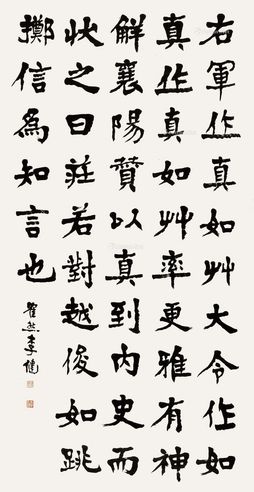 右軍作真如艸大令作如
真作真如艸率更雅有神
解襄陽贊以真到內史而
狀之曰莊若對越俊如跳
擲信為知言也
瞿然李健